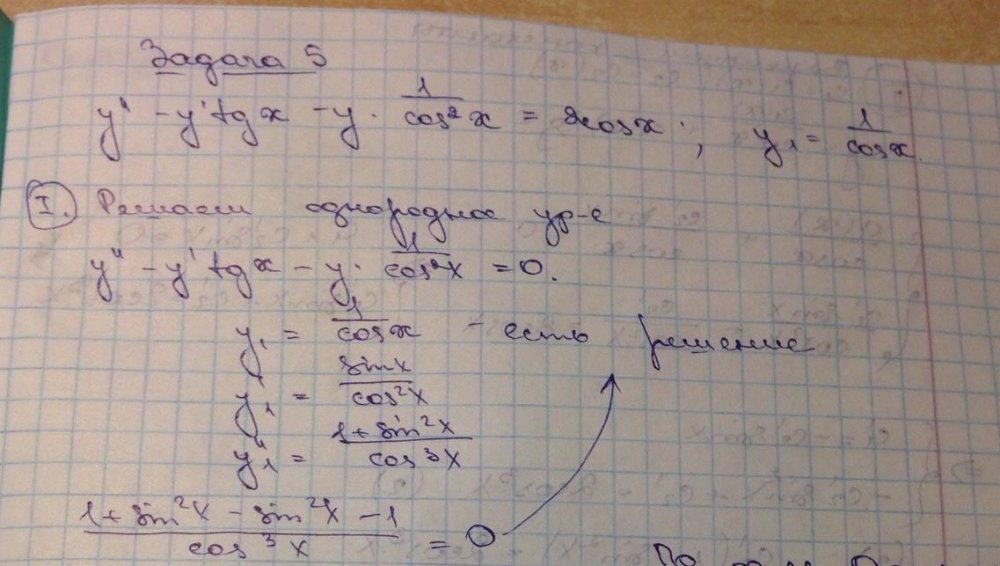 Задача 5
y'' - y' tg x - y · 1/cos²x = 2cosx ; y₁ = 1/cosx.
I. Решаем однородное ур-е
y'' - y' tg x - y · 1/cos²x = 0.
y₁ = 1/cosx - есть решение
y₁' = sinx/cos²x
y₁'' = 1+sin²x/cos³x
1+sin²x - sin²x - 1/cos³x = 0
По